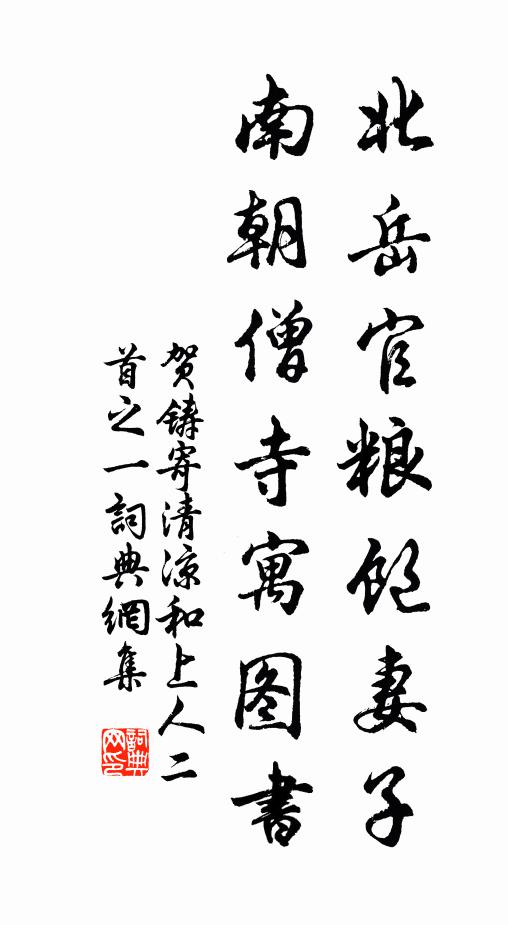 北岳官粮飽妻子
南朝僧寺寓图書
贺铸寄清凉和上人二
首之一詞典網集
詞典网印